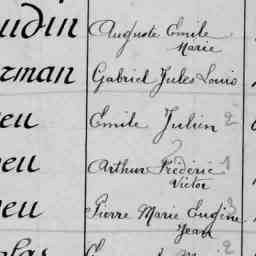 udin Auguste Emile
Marie
rman Gabriel Jules Louis
eu Emile Julien 2
eu Arthur Frédéric 1
Victor
eu Pierre Marie Eugène 3
Jean
las 2